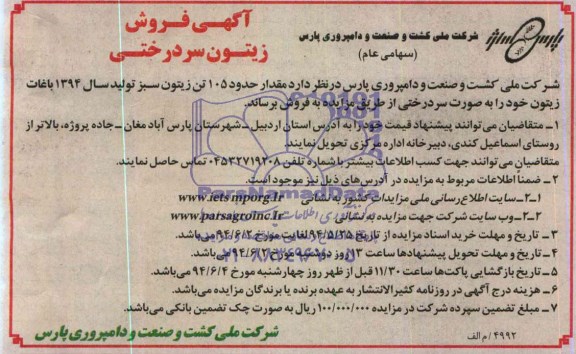 آگهی فروش
زیتون سردرختی
شرکت ملی کشت و صنعت و دامپروری پارس
(سهامی عام)
شرکت ملی کشت و صنعت و دامپروری پارس درنظر دارد مقدار حدود ۱۰۵ تن زیتون سبز تولید سال ۱۳۹۴ باغات
زیتون خود را به صورت سردرختی از طریق مزایده به فروش برساند.
۱ــ متقاضیان می‌توانند پیشنهاد قیمت خود را به آدرس استان اردبیل ــ شهرستان پارس آباد مغان ــ جاده پروژه، بالاتر از
روستای اسماعیل کندی، دبیرخانه اداره مرکزی تحویل نمایند.
متقاضیان می‌توانند جهت کسب اطلاعات بیشتر با شماره تلفن ۰۴۵۳۲۷۱۹۲۰۸ تماس حاصل نمایند.
۲ــ ضمناً اطلاعات مربوط به مزایده در آدرس‌های ذیل نیز موجود است.
۱ــ۲ــ سایت اطلاع رسانی ملی مزایدات کشور به نشانی www.ietsmporg.Ir
۲ــ۲ــ وب سایت شرکت جهت مزایده به نشانی www.parsagroinc.Ir
۳ــ تاریخ و مهلت خرید اسناد مزایده از تاریخ ۹۴/۵/۲۵ لغایت مورخ ۹۴/۶/۲ می‌باشد.
۴ــ تاریخ و مهلت تحویل پیشنهادها ساعت ۱۳ روز دوشنبه مورخ ۹۴/۶/۲ می‌باشد.
۵ــ تاریخ بازگشایی پاکت‌ها ساعت ۱۱/۳۰ قبل از ظهر روز چهارشنبه مورخ ۹۴/۶/۴ می‌باشد.
۶ــ هزینه درج آگهی در روزنامه کثیرالانتشار به عهده برنده یا برندگان مزایده می‌باشد.
۷ــ مبلغ تضمین سپرده شرکت در مزایده ۱۰۰/۰۰۰/۰۰۰ ریال به صورت چک تضمین بانکی می‌باشد.
شرکت ملی کشت و صنعت و دامپروری پارس
۴۹۹۲/م الف
ParsNamadData